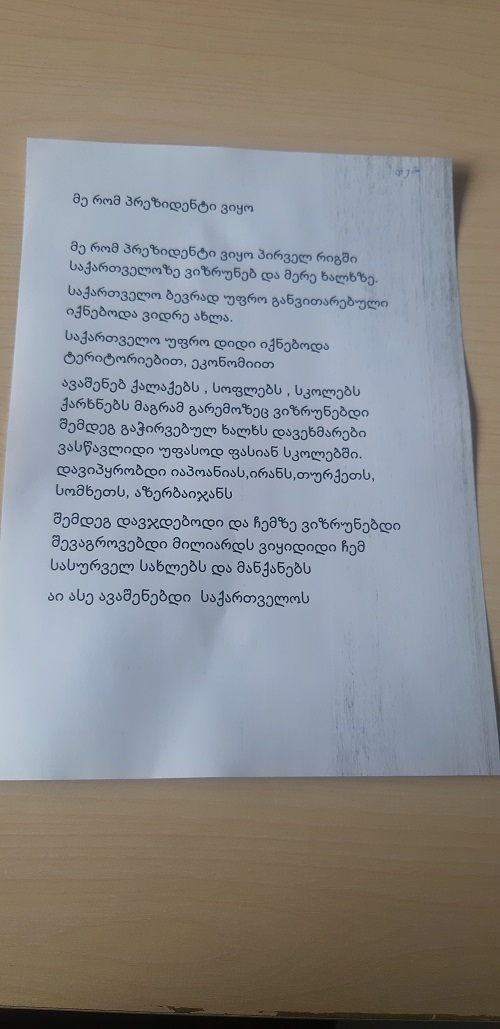 მე რომ პრეზიდენტი ვიყო
მე რომ პრეზიდენტი ვიყო პირველ რიგში
საქართველოზე ვიზრუნებ და მერე ხალხზე.
საქართველო ბევრად უფრო განვითარებული
იქნებოდა ვიდრე ახლა.
საქართველო უფრო დიდი იქნებოდა
ტერიტორიებით, ეკონომიით
ავაშენებ ქალაქებს , სოფლებს , სკოლებს
ქარხნებს მაგრამ გარემოზეც ვიზრუნებდი
შემდეგ გაჭირვებულ ხალხს დავეხმარები
ვასწავლიდი უფასოდ ფასიან სკოლებში.
დავიპყრობდი იაპოანიას,ირანს,თურქეთს,
სომხეთს, აზერბაიჯანს
შემდეგ დავჯდებოდი და ჩემზე ვიზრუნებდი
შევაგროვებდი მილიარდს ვიყიდიდი ჩემ
სასურველ სახლებს და მანქანებს
აი ასე ავაშენებდი საქართველოს